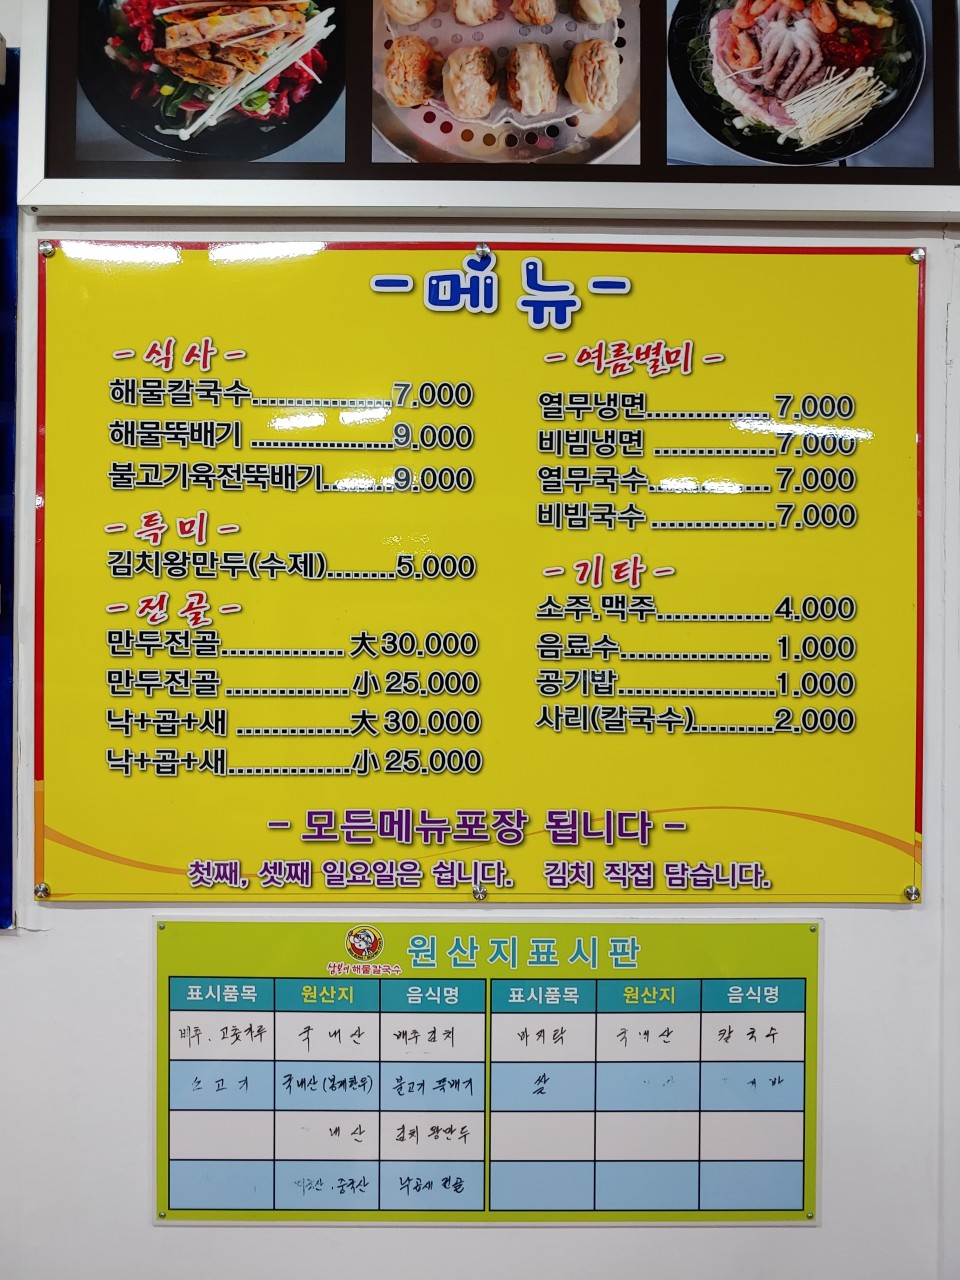 - 메뉴 -
- 식사 -
해물칼국수................7.000
해물뚝배기 ................9.000
불고기육전뚝배기........9.000
- 특미 -
김치왕만두(수제)........5.000
- 전골 -
만두전골.............. 大 30.000
만두전골 ..............小 25.000
낙+곱+새 .............大 30.000
낙+곱+새..............小 25.000
- 여름별미 -
열무냉면.............. 7.000
비빔냉면 .............. 7.000
열무국수.............. 7.000
비빔국수 ..............7.000
- 기타 -
소주.맥주.............4.000
음료수................. 1.000
공기밥..................1.000
사리(칼국수).........2.000
- 모든메뉴포장 됩니다 -
첫째, 셋째 일요일은 쉽니다. 김치 직접 담습니다.
해물칼국수 원산지표시판
표시품목 원산지 음식명 표시품목 원산지 음식명
배추. 고춧가루 국내산 배추김치 바지락 국내산 칼국수
소고기 국내산 (봉계한우) 불고기 뚝배기 쌀
내산 김치 왕만두
중국산 낙곱새 전골